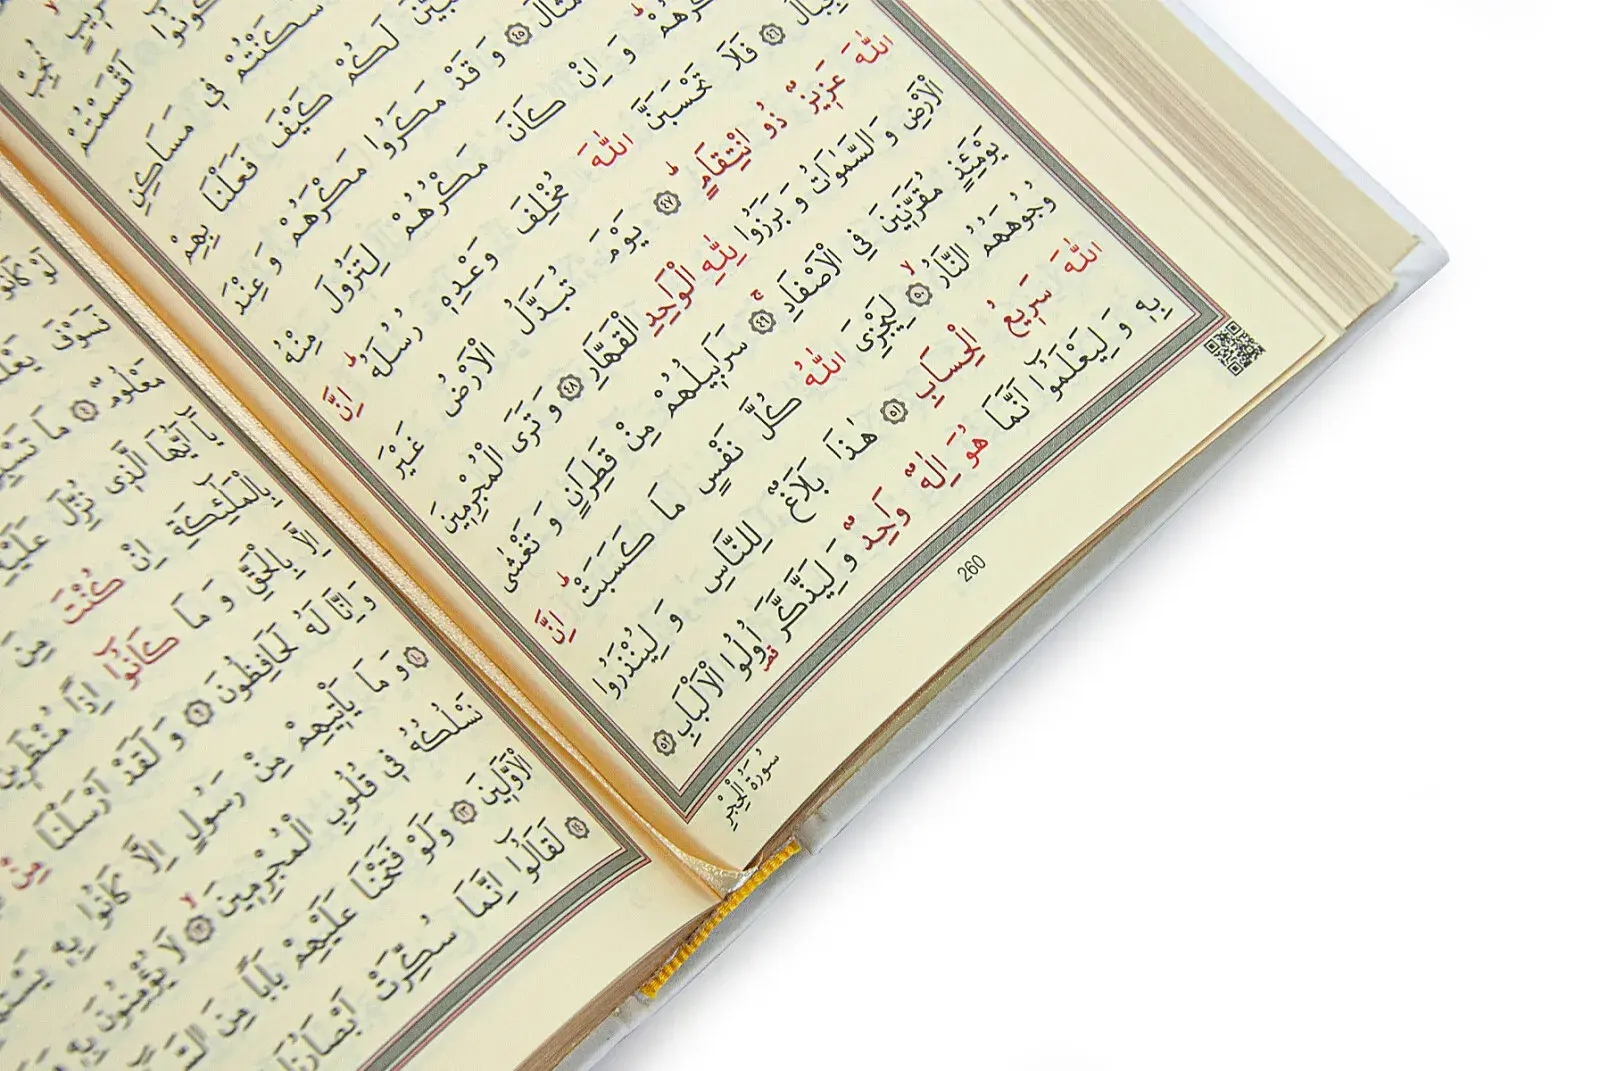 نُجِبْ
اَقْسَمْتُمْ
فِي مَسَاكِنِ
لَكُمْ كَيْفَ فَعَلْنَا بِهِمْ
﴿٤٥﴾ وَقَدْ مَكَرُوا مَكْرَهُمْ وَعِنْدَ
وَاِنْ كَانَ مَكْرُهُمْ لِتَزُولَ مِنْهُ
﴿٤٦﴾ فَلَا تَحْسَبَنَّ اللّٰهَ مُخْلِفَ وَعْدِهٖ رُسُلَهُ ط اِنَّ
اللّٰهَ عَزِيزٌ ذُو انْتِقَامٍ ط ﴿٤٧﴾ يَوْمَ تُبَدَّلُ الْاَرْضُ غَيْرَ
الْاَرْضِ وَالسَّمٰوَاتُ وَبَرَزُوا لِلّٰهِ الْوَاحِدِ الْقَهَّارِ ﴿٤٨﴾ وَتَرَى الْمُجْرِمِينَ
يَوْمَئِذٍ مُقَرَّنِينَ فِي الْاَصْفَادِ ج ﴿٤٩﴾ سَرَابِيلُهُمْ مِنْ قَطِرَانٍ وَتَغْشٰى
وُجُوهَهُمُ النَّارُ لا ﴿٥٠﴾ لِيَجْزِيَ اللّٰهُ كُلَّ نَفْسٍ مَا كَسَبَتْ ط اِنَّ
اللّٰهَ سَرِيعُ الْحِسَابِ ﴿٥١﴾ هٰذَا بَلَاغٌ لِلنَّاسِ وَلِيُنْذَرُوا
بِهٖ وَلِيَعْلَمُوا اَنَّمَا هُوَ اِلٰهٌ وَاحِدٌ وَلِيَذَّكَّرَ اُولُوا الْاَلْبَابِ ﴿٥٢﴾
260
سُورَةُ الْحِجْرِ
لَوْ كَانُوا
فَسَوْفَ
مَعْلُومٌ ﴿٤﴾ مَا
يَٓا اَيُّهَا الَّذِي نُزِّلَ عَلَيْهِ
بِالْمَلٰٓئِكَةِ اِنْ كُنْتَ مِنَ
اِلَّا بِالْحَقِّ وَمَا كَانُٓوا اِذًا مُنْظَرِينَ
وَاِنَّا لَهُ لَحَافِظُونَ ﴿٩﴾ وَلَقَدْ اَرْسَلْنَا مِنْ
﴿١٠﴾ وَمَا يَأْتِيهِمْ مِنْ رَسُولٍ اِلَّا كَانُوا بِهٖ
نَسْلُكُهُ فِي قُلُوبِ الْمُجْرِمِينَ لا ﴿١٢﴾ لَا يُؤْمِنُونَ بِهٖ
الْاَوَّلِينَ ﴿١٣﴾ وَلَوْ فَتَحْنَا عَلَيْهِمْ بَابًا مِنَ
﴿١٤﴾ لَقَالُٓوا اِنَّمَا سُكِّرَتْ اَبْصَارُنَا